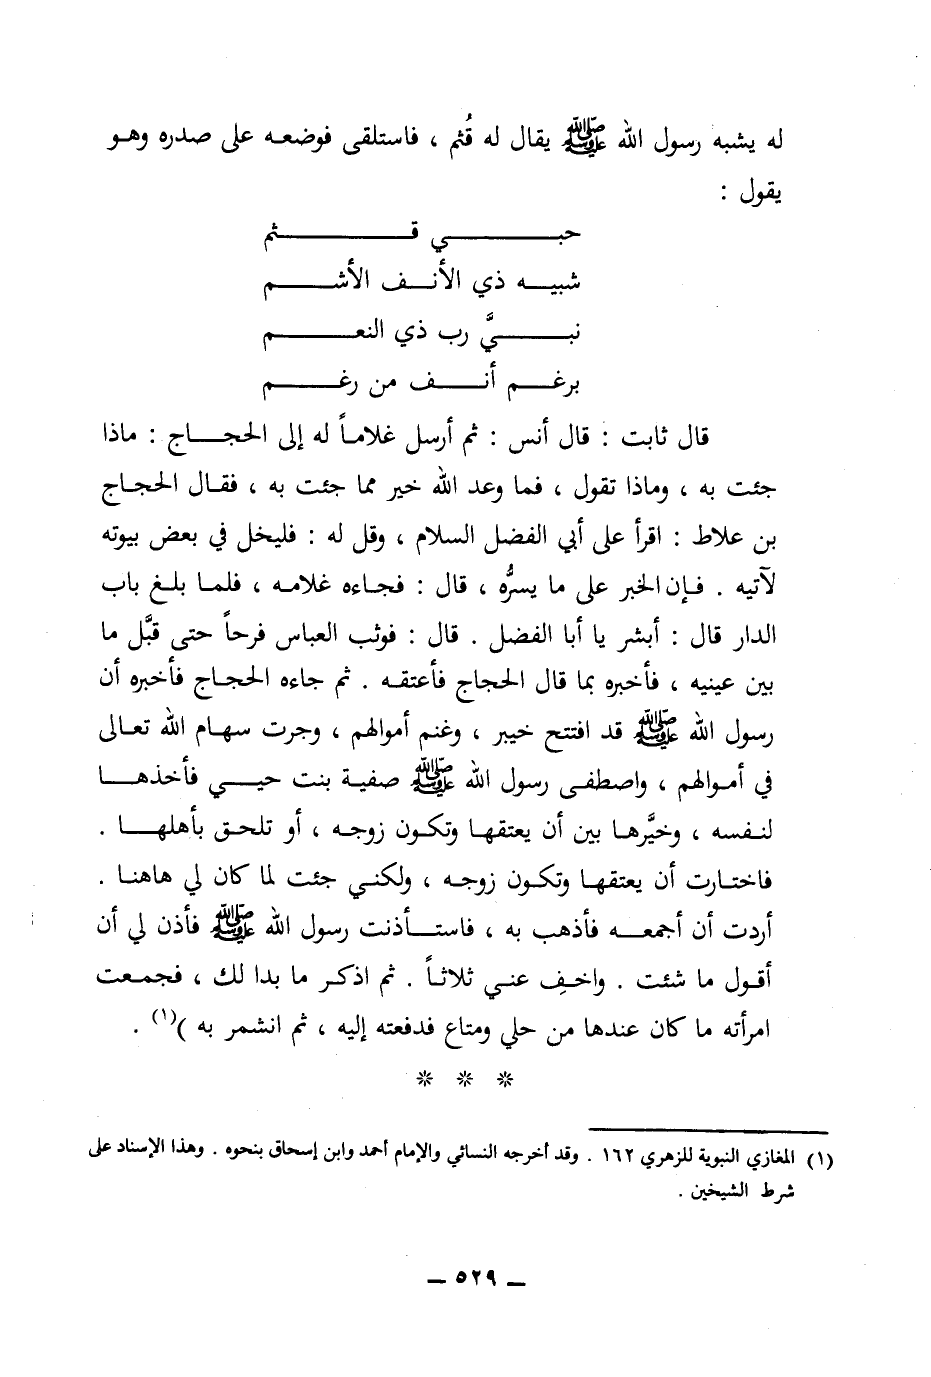 له يشبه رسول الله ﷺ يقال له قُثم ، فاستلقى فوضعه على صدره وهو
يقول :
حبي قثم
شبيه ذي الأنف الأشم
نبيَّ رب ذي النعم
برغم أنف من رغم
قال ثابت : قال أنس : ثم أرسل غلاماً له إلى الحجاج : ماذا
جئت به ، وماذا تقول ، فما وعد الله خير مما جئت به ، فقال الحجاج
بن علاط : اقرأ على أبي الفضل السلام ، وقل له : فليخل في بعض بيوته
لآتيه . فإن الخبر على ما يسرُّه ، قال : فجاءه غلامه ، فلما بلغ باب
الدار قال : أبشر يا أبا الفضل . قال : فوثب العباس فرحاً حتى قبَّل ما
بين عينيه ، فأخبره بما قال الحجاج فأعتقه . ثم جاءه الحجاج فأخبره أن
رسول الله ﷺ قد افتتح خيبر ، وغنم أموالهم ، وجرت سهام الله تعالى
في أموالهم ، واصطفى رسول الله ﷺ صفية بنت حيي فأخذها
لنفسه ، وخيَّرها بين أن يعتقها وتكون زوجه ، أو تلحق بأهلها .
فاختارت أن يعتقها وتكون زوجه ، ولكني جئت لما كان لي هاهنا .
أردت أن أجمعه فأذهب به ، فاستأذنت رسول الله ﷺ فأذن لي أن
أقول ما شئت . واخفِ عني ثلاثاً . ثم اذكر ما بدا لك ، فجمعت
امرأته ما كان عندها من حلي ومتاع فدفعته إليه ، ثم انشمر به )(١) .
* * *
(١) المغازي النبوية للزهري ١٦٢ . وقد أخرجه النسائي والإمام أحمد وابن إسحاق بنحوه . وهذا الإسناد على
شرط الشيخين .
— ٥٢٩ —